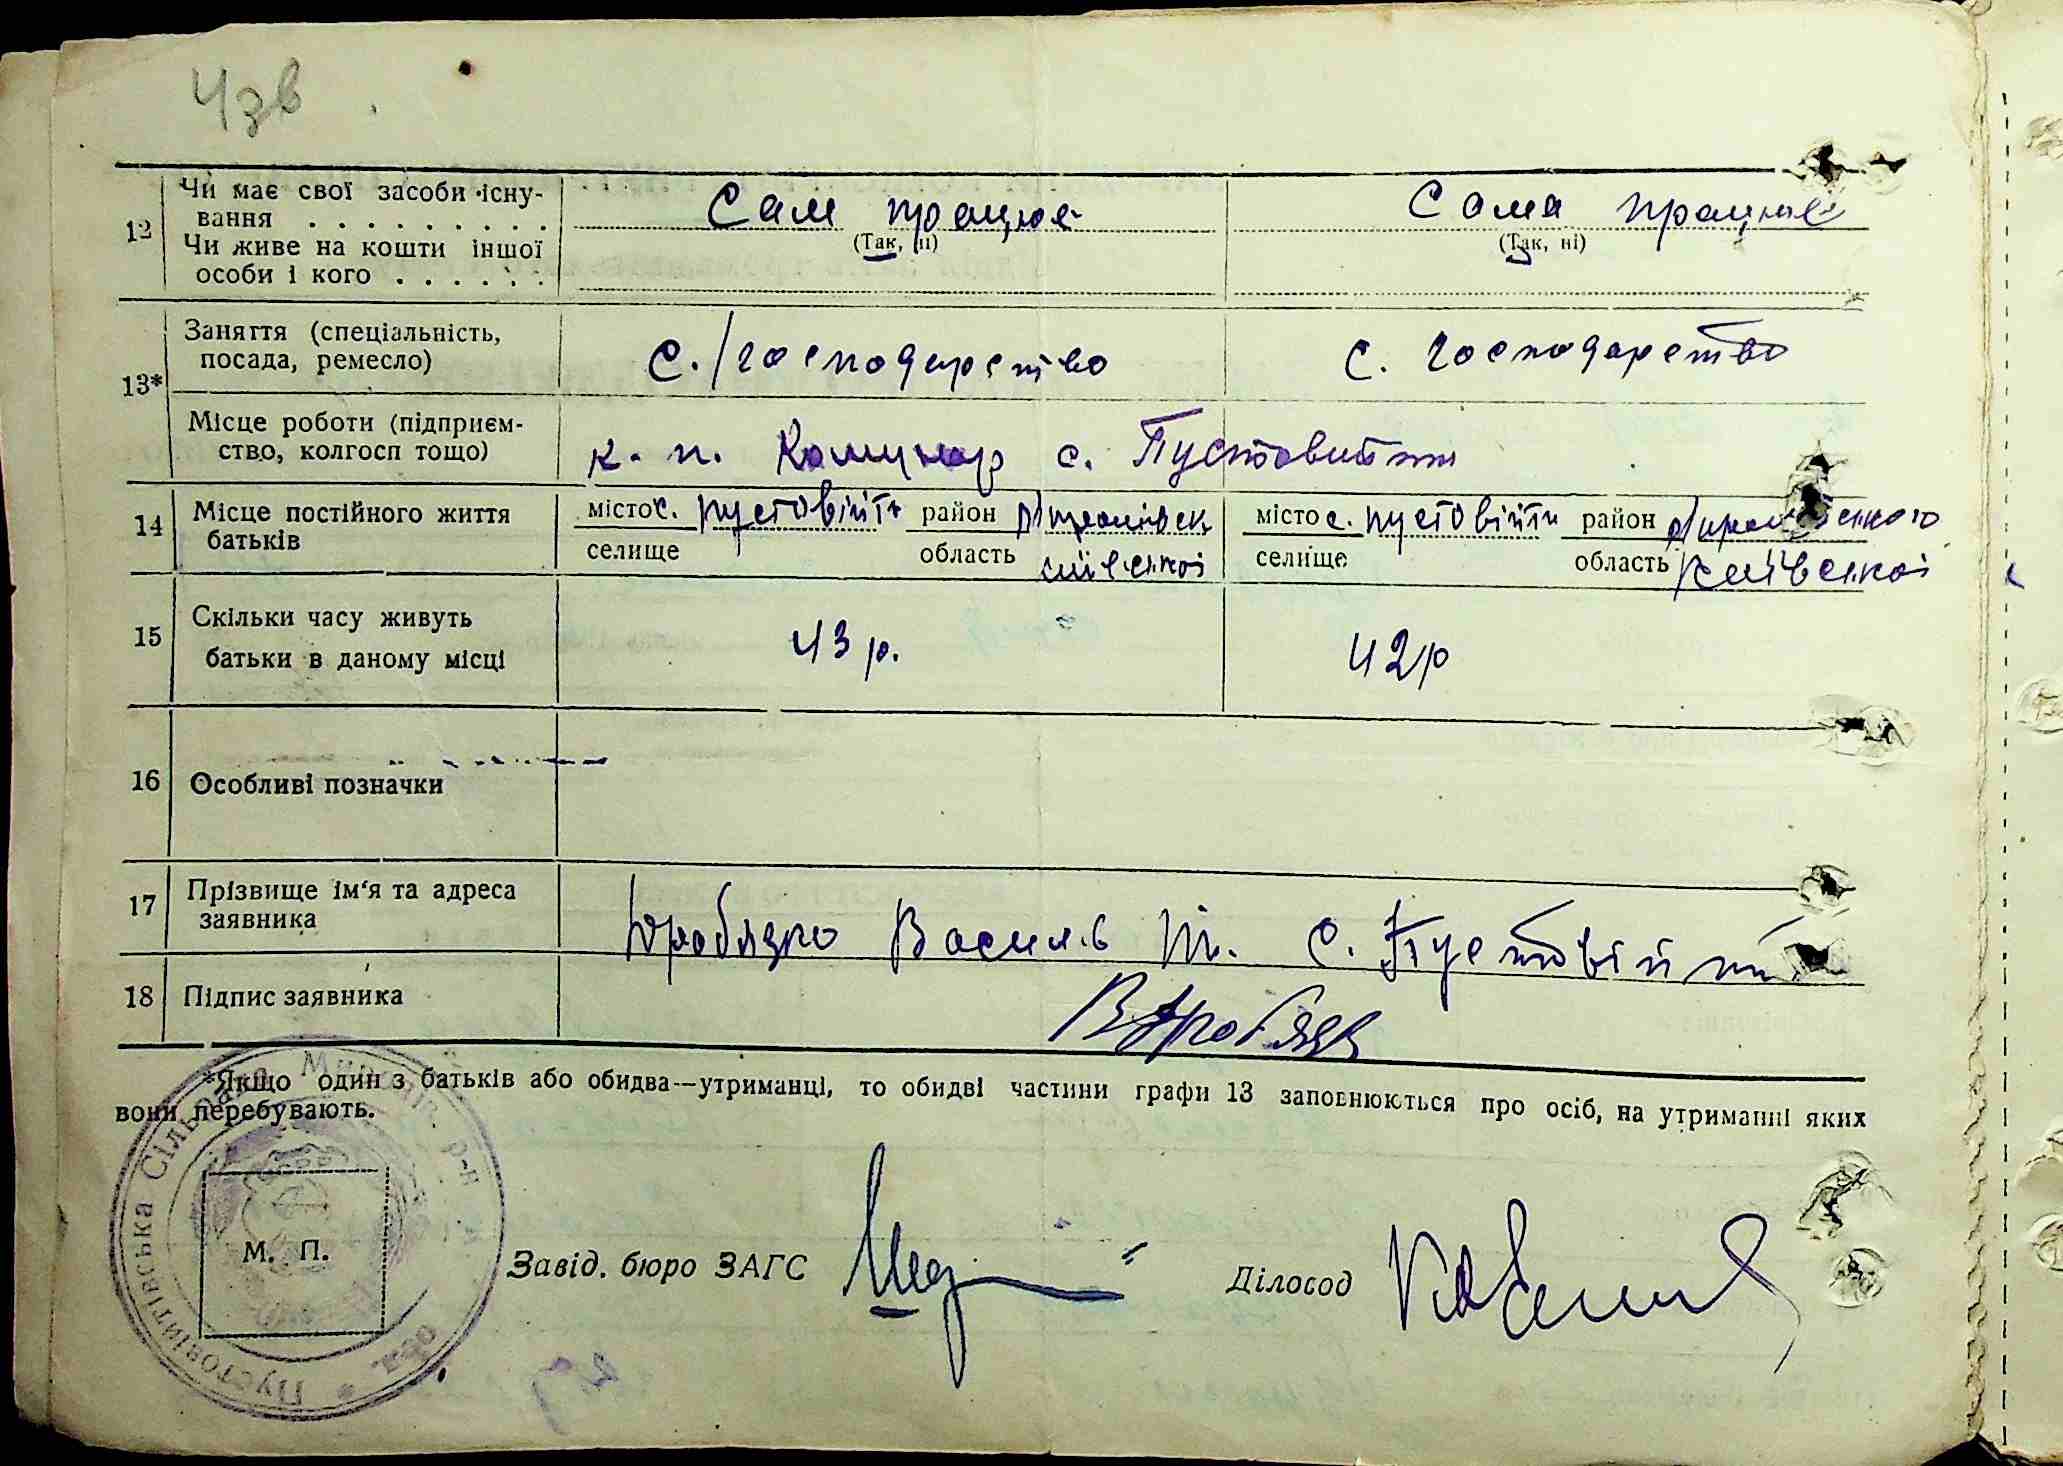 4зв
12 Чи має свої засоби існу-
вання . . . . . . . . . Сам працює Сама працює
(Так, ні) (Так, ні)
Чи живе на кошти іншої
особи і кого . . . . . .
13* Заняття (спеціальність,
посада, ремесло) с./господарство с. господарство
Місце роботи (підприєм-
ство, колгосп тощо) к. п. Комунар с. Пустовийти
14 Місце постійного життя
батьків місто с. пустовійти район місто с. пустовійти район
селище область селище область Київської
15 Скільки часу живуть
батьки в даному місці 43 р. 42 р
16 Особливі позначки
17 Прізвище ім'я та адреса
заявника Василь с. Пустовійти
18 Підпис заявника
*Якщо один з батьків або обидва—утриманці, то обидві частини графи 13 заповнюються про осіб, на утриманні яких
вони перебувають.
Пустовитівська Сільрада р-н
М. П.
Завід. бюро ЗАГС Діловод